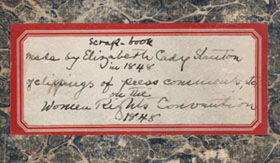 Scrap-book
made by Elizabeth Cady Stanton
in 1848
of clippings of press comments, &c
on the
Women Rights Convention
1848